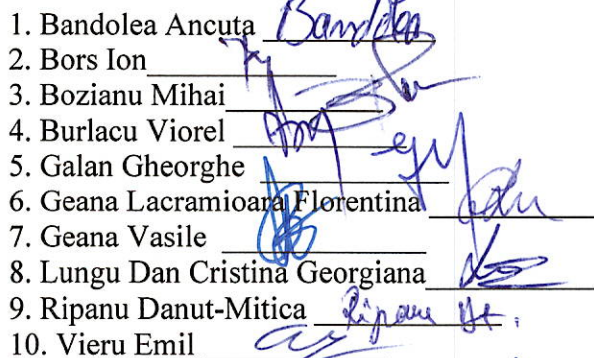 1. Bandolea Ancuta Bandolea
2. Bors Ion
3. Bozianu Mihai
4. Burlacu Viorel
5. Galan Gheorghe
6. Geana Lacramioara Florentina
7. Geana Vasile
8. Lungu Dan Cristina Georgiana
9. Ripanu Danut-Mitica Ripanu
10. Vieru Emil